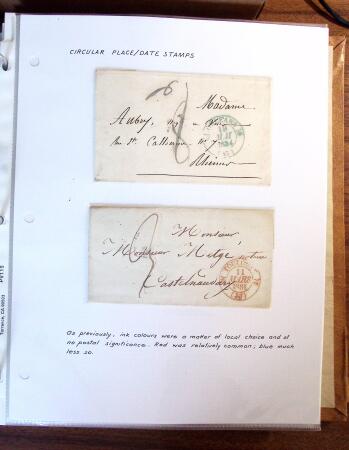 CIRCULAR PLACE/DATE STAMPS
Madame
Aubry,
Rue Ste Catherine No 7
Monsieur
Monsieur Metgé
Castelnaudary
11
MARS
As previously, ink colours were a matter of local choice and of
no postal significance. Red was relatively common; blue much
less so.
Torrance, CA 90503